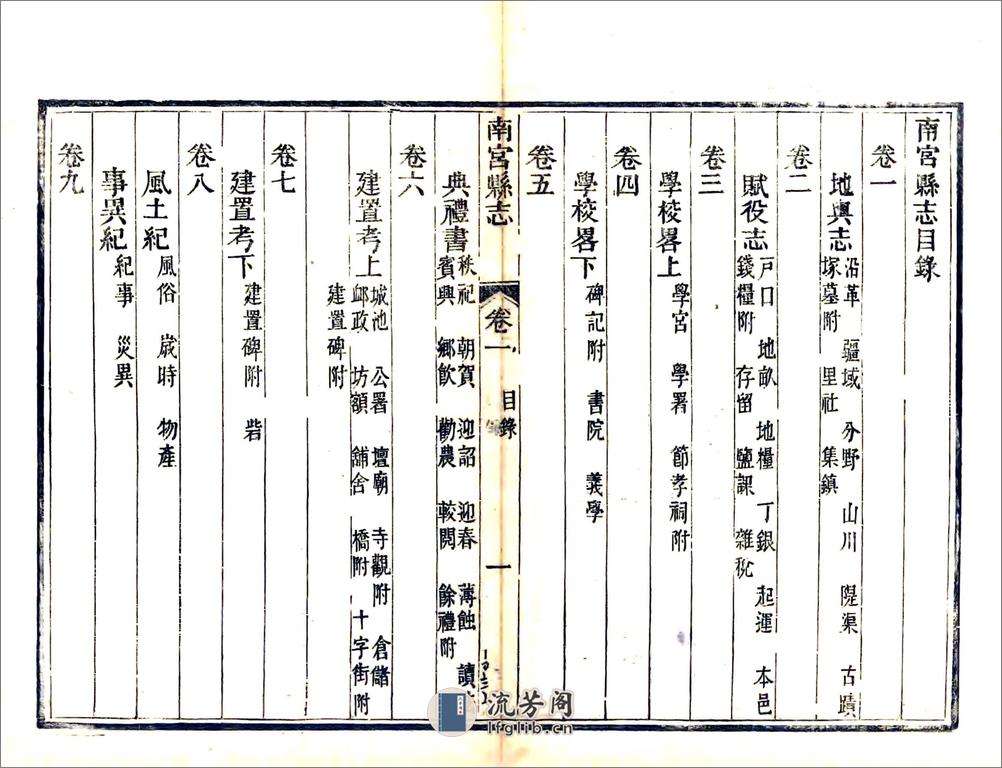 南宮縣志目錄
卷一
地輿志 沿革 疆域 分野 山川 隄渠 古蹟
塚墓附 里社 集鎮
卷二
賦役志 戸口 地畝 地糧 丁銀 起運 本邑
錢糧附 存留 鹽課 雜稅
卷三
學校畧上 學宮 學署 節孝祠附
卷四
學校畧下 碑記附 書院 義學
卷五
南宮縣志 卷一 目錄 一
典禮書 秩祀 朝賀 迎詔 迎春 薄蝕 讀
賓興 鄉飲 勸農 較閱 餘禮附
卷六
建置考上 城池 公署 壇廟 寺觀附 倉儲
郵政 坊額 舖舍 橋附 十字街附
建置碑附
卷七
建置考下 建置碑附 砦
卷八
風土紀 風俗 歲時 物產
事異紀 紀事 災異
卷九
流芳阁
lfglib.cn